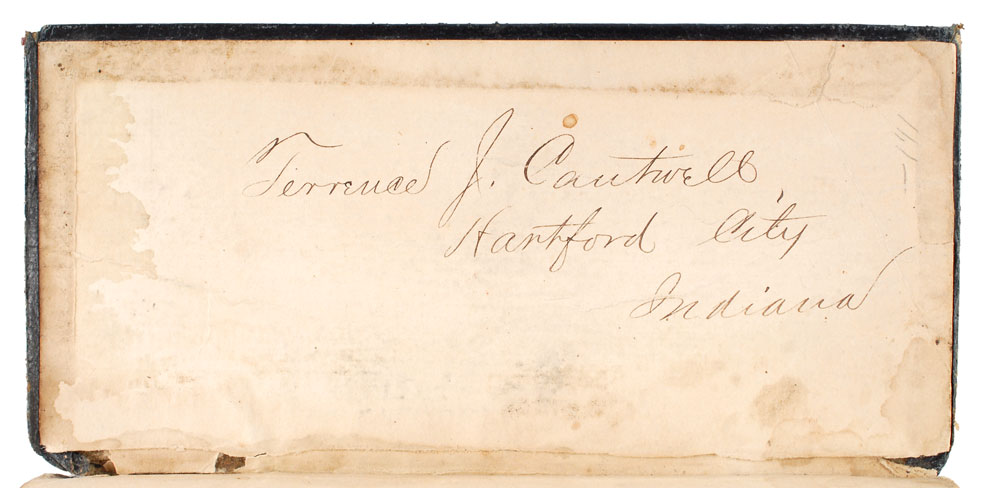 Terrence J. Cantwell,
Hartford City
Indiana